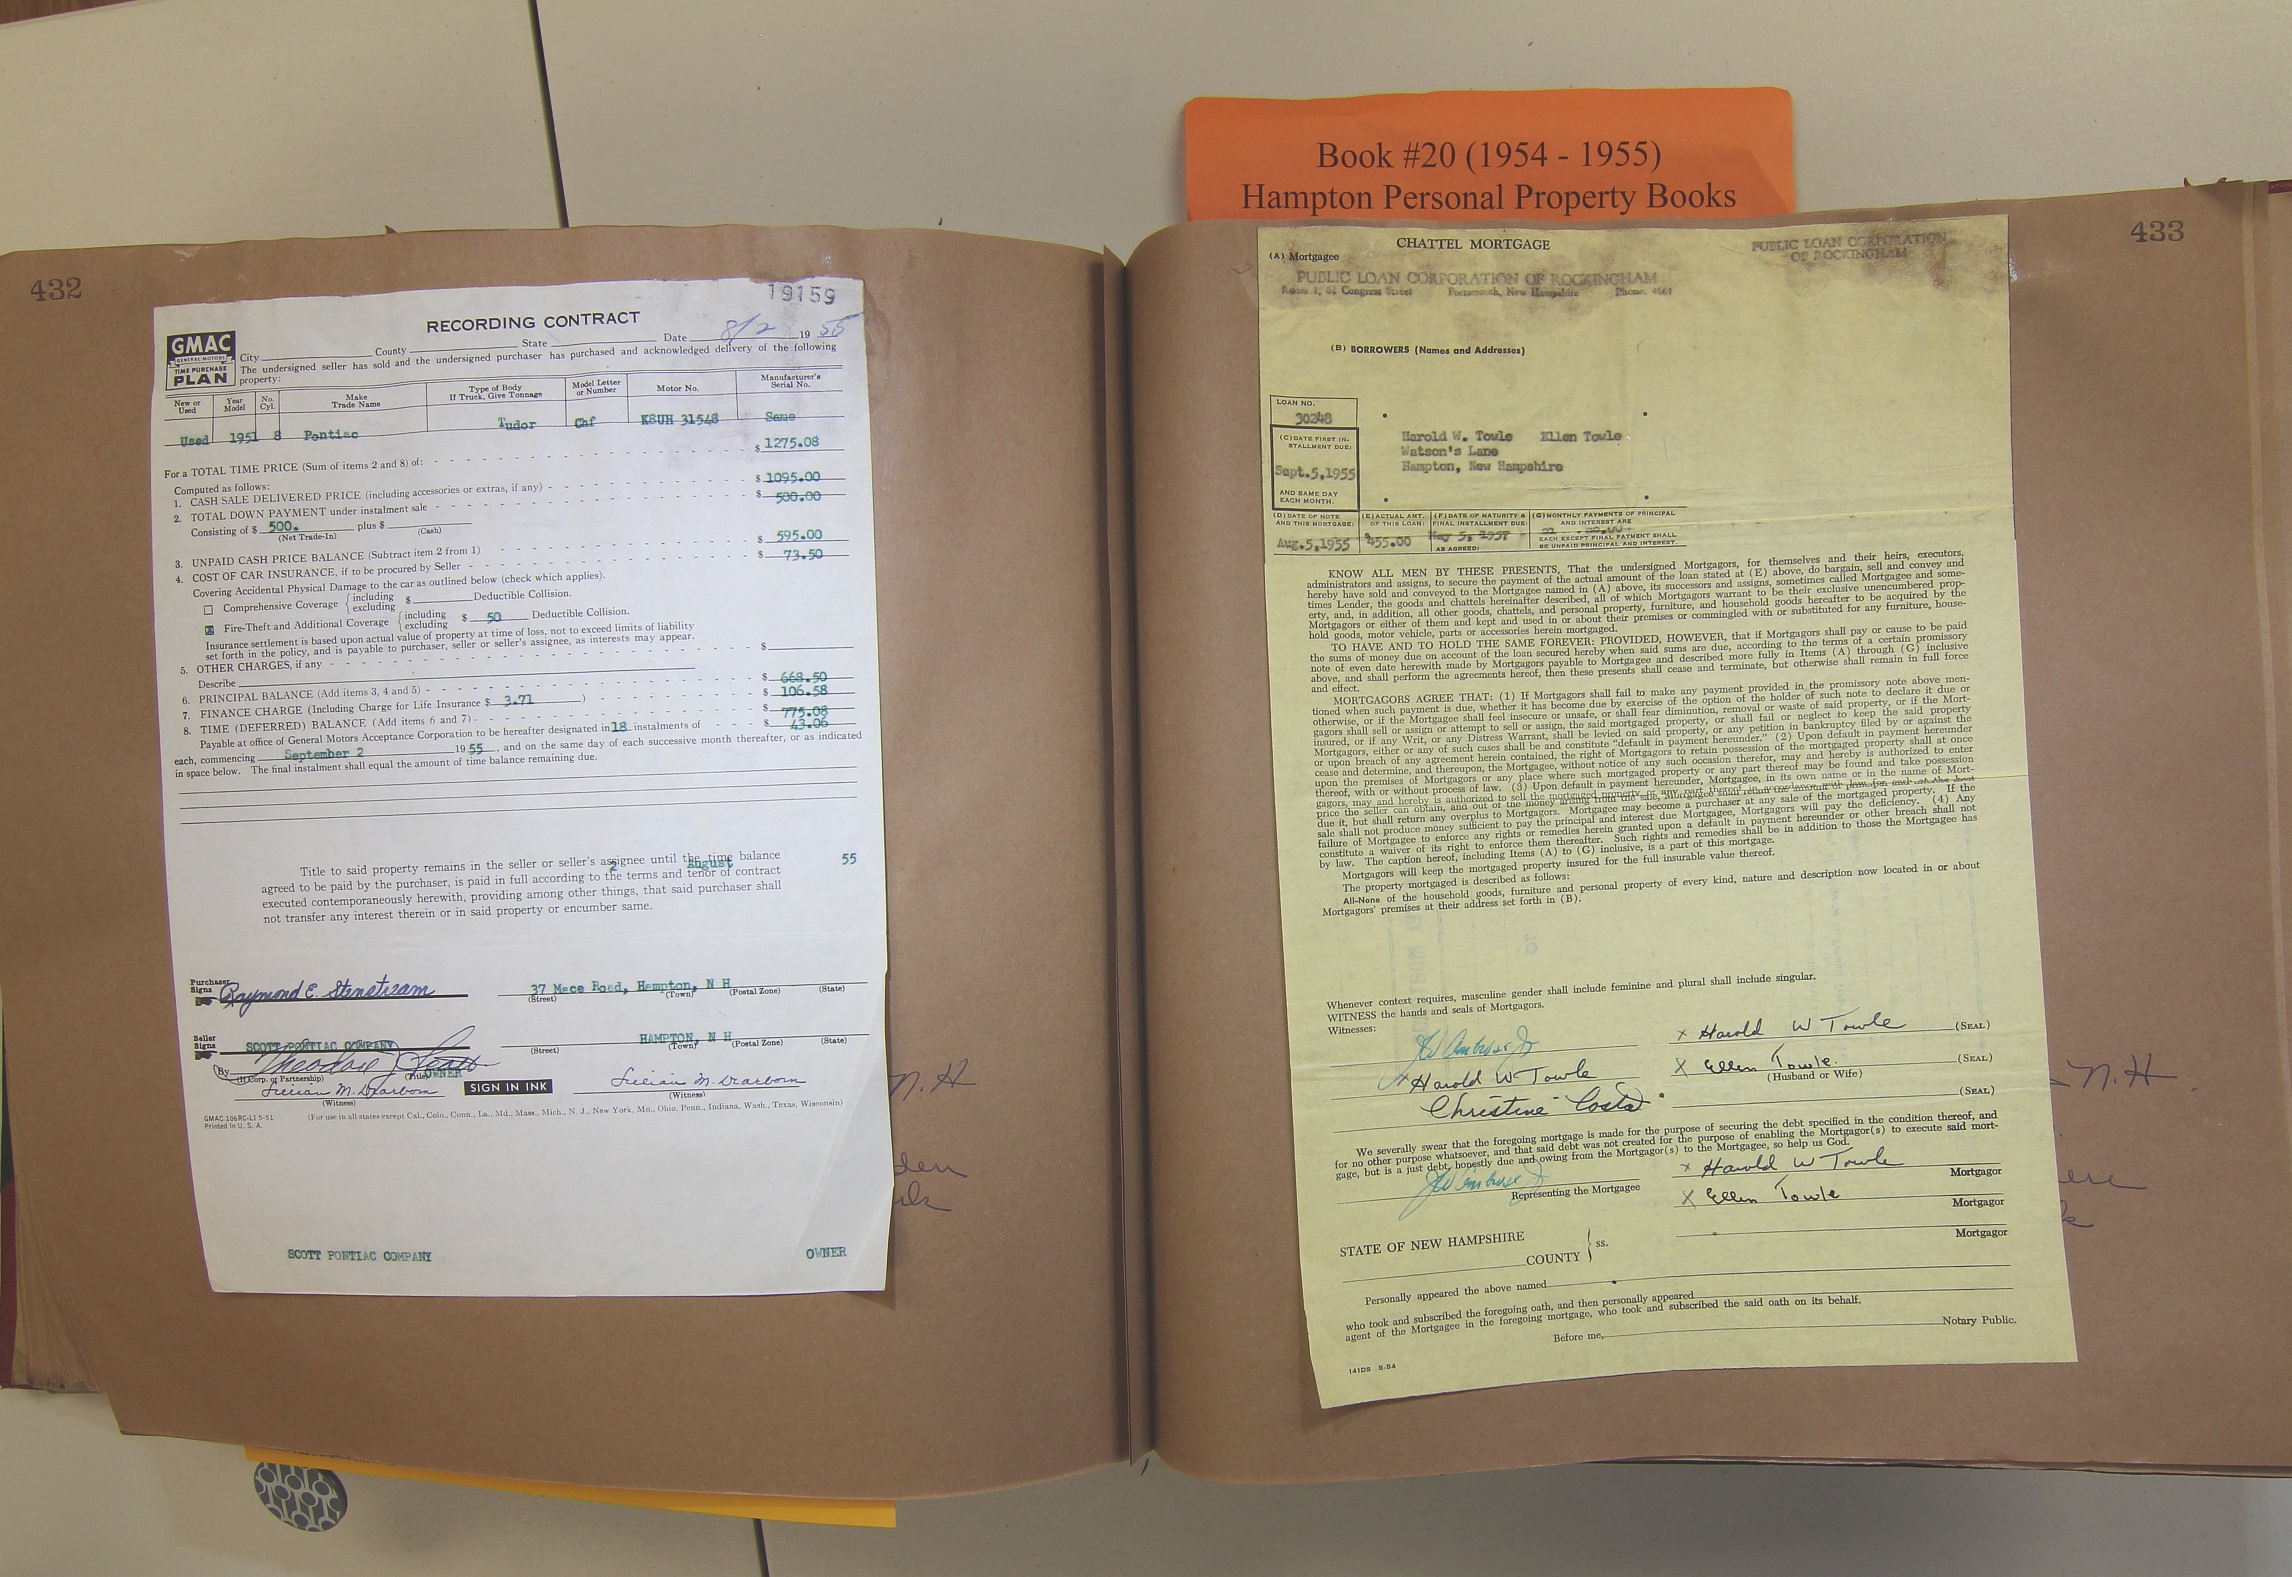 Book #20 (1954 - 1955)
Hampton Personal Property Books
432
19159
RECORDING CONTRACT
GMAC
GENERAL MOTORS
TIME PURCHASE
PLAN
City County State Date 8/2 19 55
The undersigned seller has sold and the undersigned purchaser has purchased and acknowledged delivery of the following
property:
New or Used Year Model No. Cyl. Make Trade Name Type of Body If Truck, Give Tonnage Model Letter or Number Motor No. Manufacturer's Serial No.
Used 1951 8 Pontiac Tudor Chf K8UH 31548 Same
For a TOTAL TIME PRICE (Sum of items 2 and 8) of: $ 1275.08
Computed as follows:
1. CASH SALE DELIVERED PRICE (including accessories or extras, if any) $ 1095.00
2. TOTAL DOWN PAYMENT under instalment sale $ 500.00
Consisting of $ 500. plus $
(Net Trade-In) (Cash)
3. UNPAID CASH PRICE BALANCE (Subtract item 2 from 1) $ 595.00
4. COST OF CAR INSURANCE, if to be procured by Seller $ 73.50
Covering Accidental Physical Damage to the car as outlined below (check which applies).
Comprehensive Coverage {including excluding $ Deductible Collision.
Fire-Theft and Additional Coverage {including excluding $ 50 Deductible Collision.
Insurance settlement is based upon actual value of property at time of loss, not to exceed limits of liability
set forth in the policy, and is payable to purchaser, seller or seller's assignee, as interests may appear.
5. OTHER CHARGES, if any $
Describe
6. PRINCIPAL BALANCE (Add items 3, 4 and 5) $ 668.50
7. FINANCE CHARGE (Including Charge for Life Insurance $ 3.71 ) $ 106.58
8. TIME (DEFERRED) BALANCE (Add items 6 and 7) $ 775.08
Payable at office of General Motors Acceptance Corporation to be hereafter designated in 18 instalments of $ 43.06
each, commencing September 2 19 55, and on the same day of each successive month thereafter, or as indicated
in space below. The final instalment shall equal the amount of time balance remaining due.
Title to said property remains in the seller or seller's assignee until the time balance
2 August 55
agreed to be paid by the purchaser, is paid in full according to the terms and tenor of contract
executed contemporaneously herewith, providing among other things, that said purchaser shall
not transfer any interest therein or in said property or encumber same.
Purchaser Signs Raymond E. Stenstream 37 Mace Road, Hampton, N H
(Street) (Town) (Postal Zone) (State)
Seller Signs SCOTT PONTIAC COMPANY HAMPTON, N H
(Street) (Town) (Postal Zone) (State)
By Theodore J Scott OWNER
(If Corp. or Partnership) (Title)
Lillian M. Dearborn SIGN IN INK Lillian M. Dearborn
(Witness) (Witness)
GMAC 106RC-L1 5-51 (For use in all states except Cal., Colo., Conn., La., Md., Mass., Mich., N. J., New York, Mo., Ohio, Penn., Indiana, Wash., Texas, Wisconsin)
Printed in U. S. A.
SCOTT PONTIAC COMPANY OWNER
N.H
433
CHATTEL MORTGAGE
(A) Mortgagee
PUBLIC LOAN CORPORATION
OF ROCKINGHAM
PUBLIC LOAN CORPORATION OF ROCKINGHAM
Room 1, 62 Congress Street Portsmouth, New Hampshire Phone: 4661
(B) BORROWERS (Names and Addresses)
LOAN NO.
30248
(C) DATE FIRST INSTALLMENT DUE:
Sept.5,1955
AND SAME DAY
EACH MONTH.
Harold W. Towle Ellen Towle
Watson's Lane
Hampton, New Hampshire
(D) DATE OF NOTE AND THIS MORTGAGE: (E) ACTUAL AMT. OF THIS LOAN: (F) DATE OF MATURITY & FINAL INSTALLMENT DUE: (G) MONTHLY PAYMENTS OF PRINCIPAL AND INTEREST ARE
Aug.5,1955 $455.00 May 5, AS AGREED: EACH EXCEPT FINAL PAYMENT SHALL BE UNPAID PRINCIPAL AND INTEREST.
KNOW ALL MEN BY THESE PRESENTS, That the undersigned Mortgagors, for themselves and their heirs, executors,
administrators and assigns, to secure the payment of the actual amount of the loan stated at (E) above, do bargain, sell and convey and
hereby have sold and conveyed to the Mortgagee named in (A) above, its successors and assigns, sometimes called Mortgagee and some-
times Lender, the goods and chattels hereinafter described, all of which Mortgagors warrant to be their exclusive unencumbered prop-
erty, and, in addition, all other goods, chattels, and personal property, furniture, and household goods hereafter to be acquired by the
Mortgagors or either of them and kept and used in or about their premises or commingled with or substituted for any furniture, house-
hold goods, motor vehicle, parts or accessories herein mortgaged.
TO HAVE AND TO HOLD THE SAME FOREVER: PROVIDED, HOWEVER, that if Mortgagors shall pay or cause to be paid
the sums of money due on account of the loan secured hereby when said sums are due, according to the terms of a certain promissory
note of even date herewith made by Mortgagors payable to Mortgagee and described more fully in Items (A) through (G) inclusive
above, and shall perform the agreements hereof, then these presents shall cease and terminate, but otherwise shall remain in full force
and effect.
MORTGAGORS AGREE THAT: (1) If Mortgagors shall fail to make any payment provided in the promissory note above men-
tioned when such payment is due, whether it has become due by exercise of the option of the holder of such note to declare it due or
otherwise, or if the Mortgagee shall feel insecure or unsafe, or shall fear diminution, removal or waste of said property, or if the Mort-
gagors shall sell or assign or attempt to sell or assign, the said mortgaged property, or shall fail or neglect to keep the said property
insured, or if any Writ, or any Distress Warrant, shall be levied on said property, or any petition in bankruptcy filed by or against the
Mortgagors, either or any of such cases shall be and constitute "default in payment hereunder." (2) Upon default in payment hereunder
or upon breach of any agreement herein contained, the right of Mortgagors to retain possession of the mortgaged property shall at once
cease and determine, and thereupon, the Mortgagee, without notice of any such occasion therefor, may and hereby is authorized to enter
upon the premises of Mortgagors or any place where such mortgaged property or any part thereof may be found and take possession
thereof, with or without process of law. (3) Upon default in payment hereunder, Mortgagee, in its own name or in the name of Mort-
gagors, may and hereby is authorized to sell the mortgaged property or any part thereof
price the seller can obtain, and out of the money arising from the sale, Mortgagee shall retain
due it, but shall return any overplus to Mortgagors. Mortgagee may become a purchaser at any sale of the mortgaged property. If the
sale shall not produce money sufficient to pay the principal and interest due Mortgagee, Mortgagors will pay the deficiency. (4) Any
failure of Mortgagee to enforce any rights or remedies herein granted upon a default in payment hereunder or other breach shall not
constitute a waiver of its right to enforce them thereafter. Such rights and remedies shall be in addition to those the Mortgagee has
by law. The caption hereof, including Items (A) to (G) inclusive, is a part of this mortgage.
Mortgagors will keep the mortgaged property insured for the full insurable value thereof.
The property mortgaged is described as follows:
All-None of the household goods, furniture and personal property of every kind, nature and description now located in or about
Mortgagors' premises at their address set forth in (B).
Whenever context requires, masculine gender shall include feminine and plural shall include singular.
WITNESS the hands and seals of Mortgagors.
Witnesses:
x Harold W Towle (SEAL)
x Harold W Towle X Ellen Towle (SEAL)
(Husband or Wife)
Christine Costa (SEAL)
We severally swear that the foregoing mortgage is made for the purpose of securing the debt specified in the condition thereof, and
for no other purpose whatsoever, and that said debt was not created for the purpose of enabling the Mortgagor(s) to execute said mort-
gage, but is a just debt, honestly due and owing from the Mortgagor(s) to the Mortgagee, so help us God.
x Harold W Towle Mortgagor
Representing the Mortgagee X Ellen Towle Mortgagor
Mortgagor
STATE OF NEW HAMPSHIRE
COUNTY } ss.
Personally appeared the above named
who took and subscribed the foregoing oath, and then personally appeared
agent of the Mortgagee in the foregoing mortgage, who took and subscribed the said oath on its behalf.
Before me, Notary Public.
141DS 8-54
N.H.